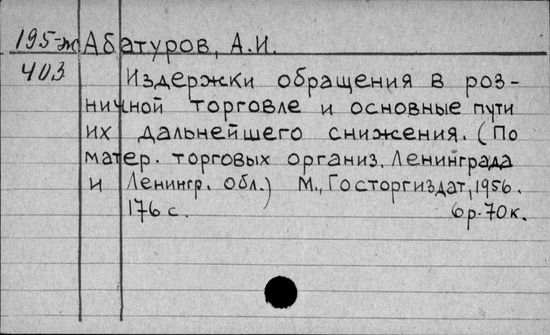 195-ж Абатуров, А.И.
403
Издержки обращения в роз-
ничной торговле и основные пути
их дальнейшего снижения. (По
матер. торговых организ. Ленинграда
и Ленингр. обл.) М., Госторгиздат, 1956.
176 с. 6р.70к.